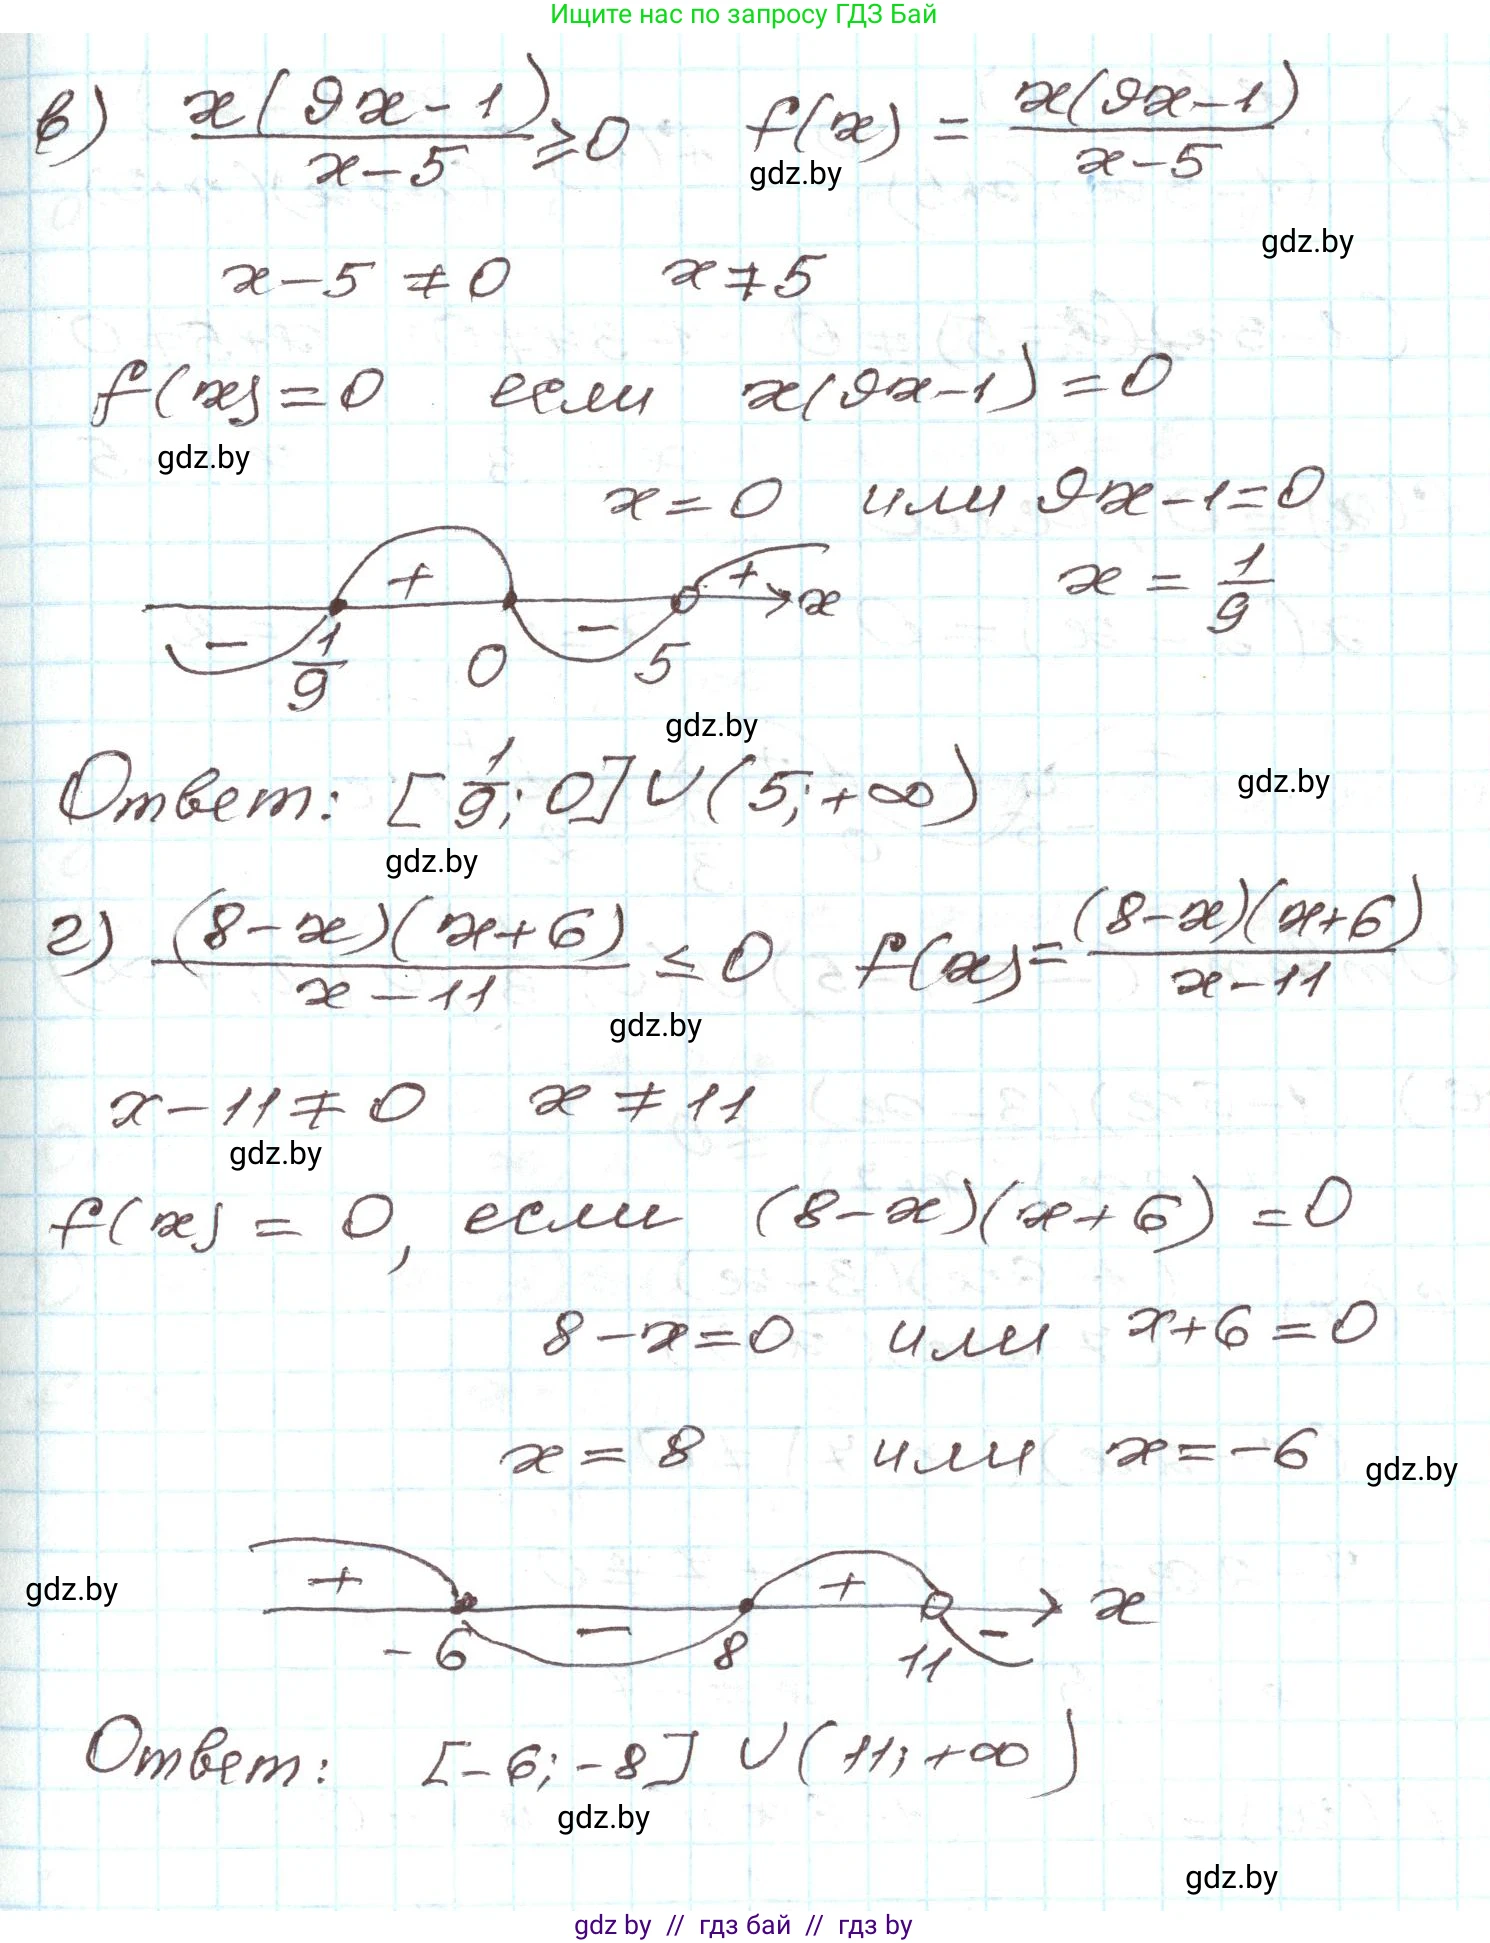 Ищите нас по запросу ГДЗ Бай
в) x(9x-1)/(x-5) ≥ 0 f(x) = x(9x-1)/(x-5)
gdz.by
gdz.by
x-5 ≠ 0 x ≠ 5
f(x) = 0 если x(9x-1) = 0
gdz.by
x = 0 или 9x-1=0
+ + x x = 1/9
- 1/9 0 - 5
gdz.by
Ответ: [1/9; 0] ∪ (5; +∞)
gdz.by
gdz.by
г) (8-x)(x+6)/(x-11) ≤ 0 f(x) = (8-x)(x+6)/(x-11)
gdz.by
x-11 ≠ 0 x ≠ 11
gdz.by
f(x) = 0, если (8-x)(x+6) = 0
8-x=0 или x+6=0
x = 8 или x = -6
gdz.by
gdz.by
+ + x
-6 - 8 11 -
Ответ: [-6; -8] ∪ (11; +∞)
gdz.by
gdz.by
gdz by // гдз бай // гдз by